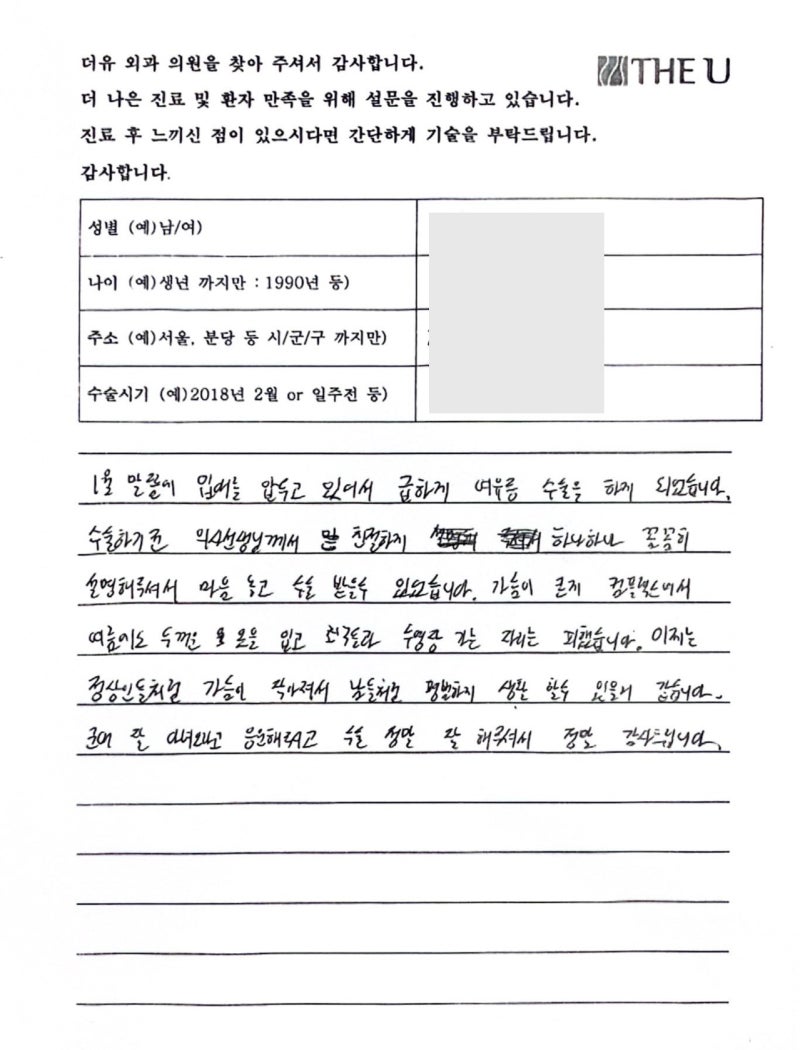 더유 외과 의원을 찾아 주셔서 감사합니다.
THE U
더 나은 진료 및 환자 만족을 위해 설문을 진행하고 있습니다.
진료 후 느끼신 점이 있으시다면 간단하게 기술을 부탁드립니다.
감사합니다.
성별 (예)남/여)
나이 (예)생년 까지만 : 1990년 등)
주소 (예)서울, 분당 등 시/군/구 까지만)
수술시기 (예)2018년 2월 or 일주전 등)
1월 말일에 입대를 앞두고 있어서 급하게 여유증 수술을 하게 되었습니다.
수술하기전 의사선생님께서 친절하게 하나하나 꼼꼼히
설명해주셔서 마음 놓고 수술 받을수 있었습니다. 가슴이 큰게 컴플렉스여서
여름에도 두꺼운 옷을 입고 수영장 가는 자리는 피했습니다. 이제는
정상인들처럼 가슴이 작아져서 남들처럼 평범하게 생활 할수 있을거 같습니다.
군대 잘 다녀오라고 응원해주시고 수술 정말 잘 해주셔서 정말 감사드립니다.